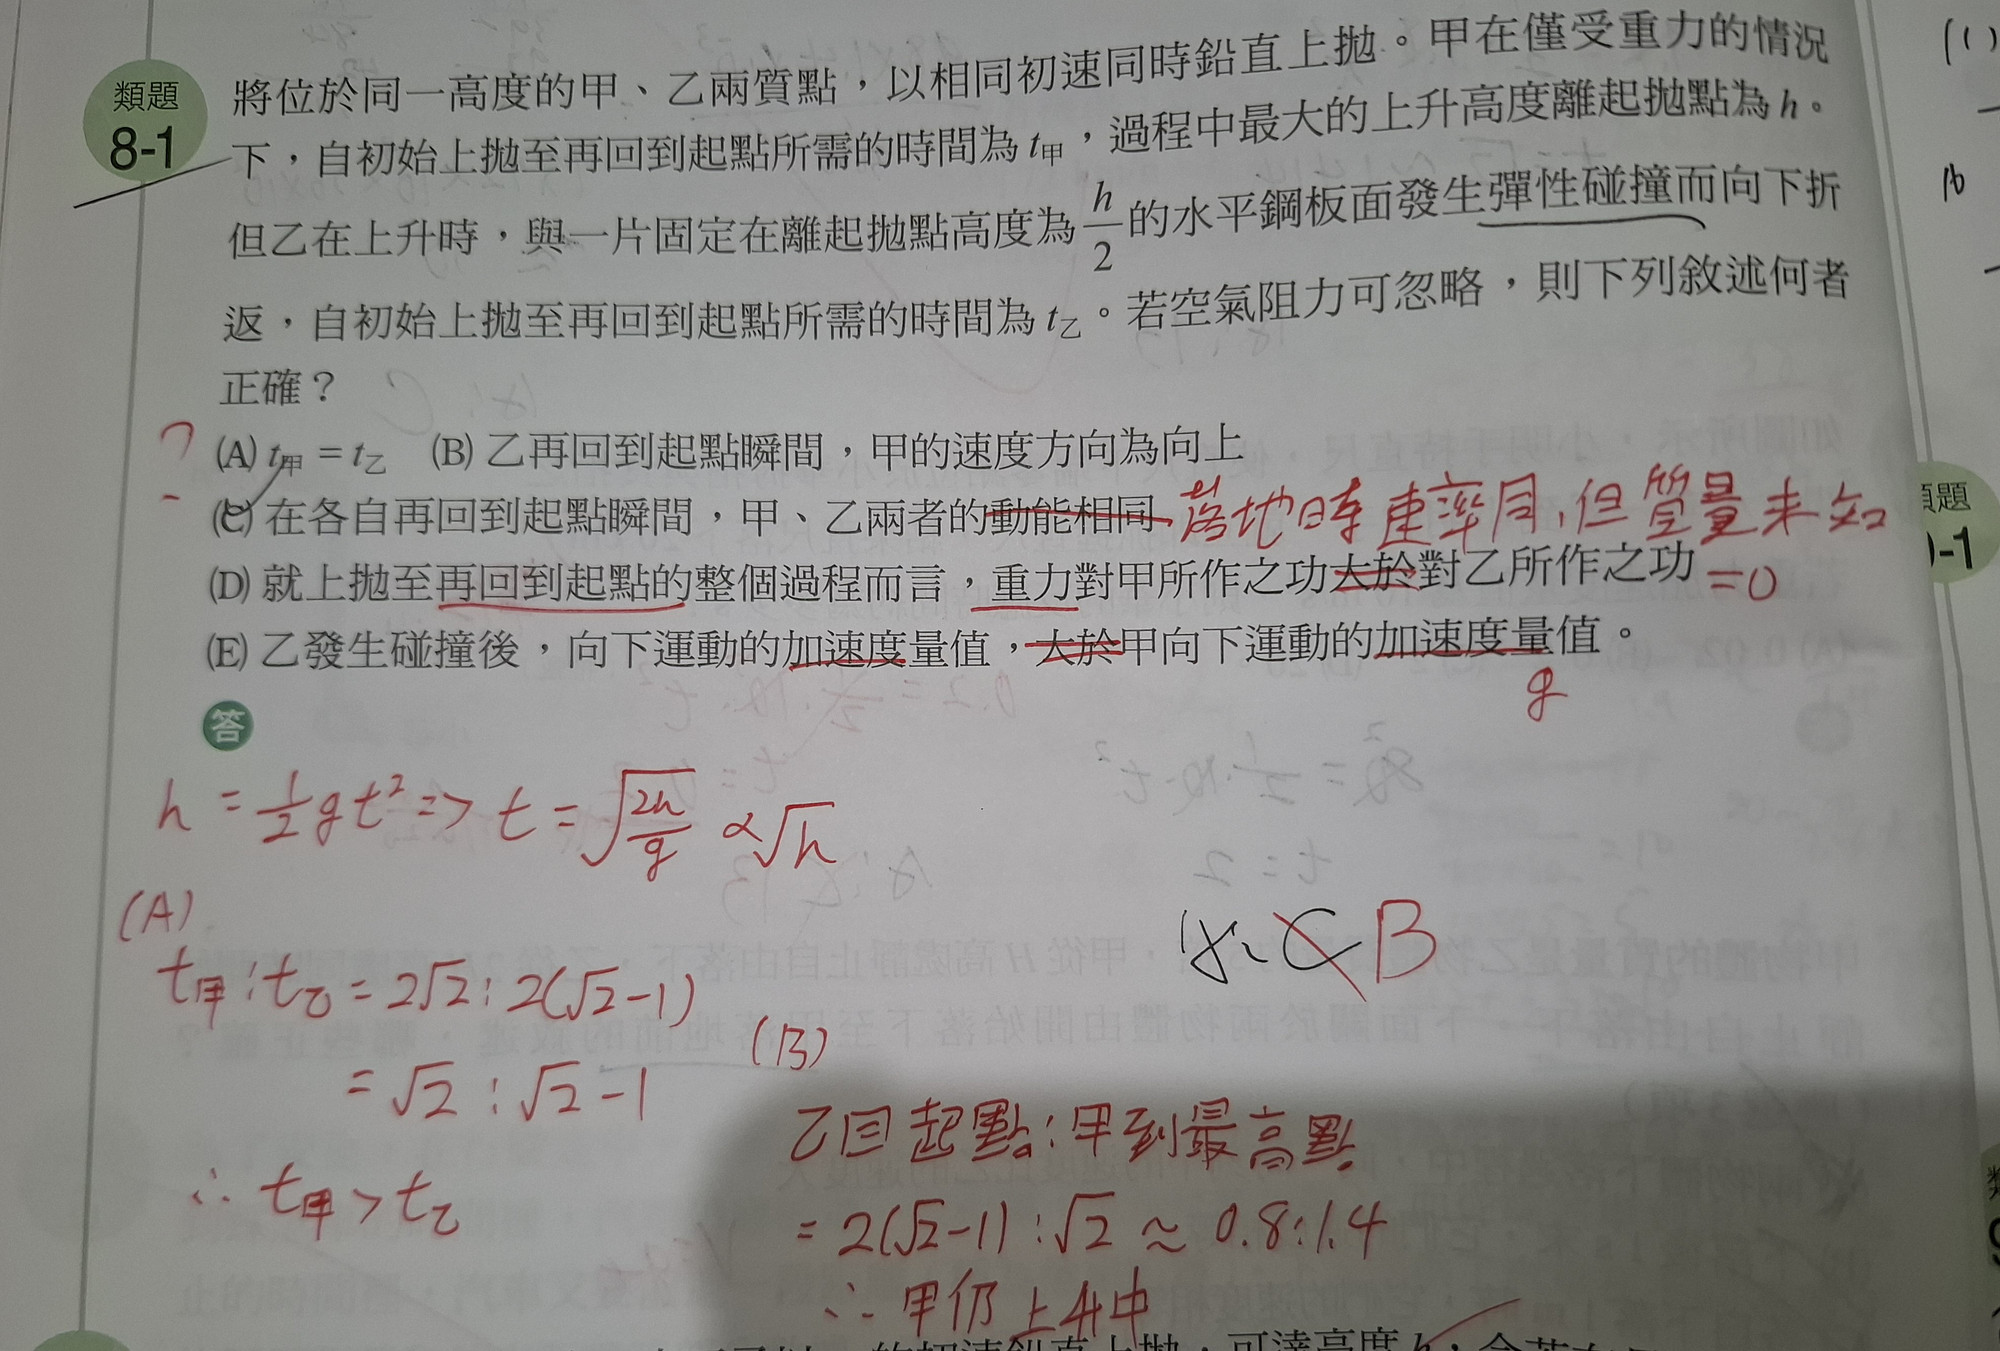 類題
8-1
將位於同一高度的甲、乙兩質點，以相同初速同時鉛直上拋。甲在僅受重力的情況
下，自初始上拋至再回到起點所需的時間為 t甲，過程中最大的上升高度離起拋點為 h。
但乙在上升時，與一片固定在離起拋點高度為 h/2 的水平鋼板面發生彈性碰撞而向下折
返，自初始上拋至再回到起點所需的時間為 t乙。若空氣阻力可忽略，則下列敘述何者
正確？
(A) t甲 = t乙 (B) 乙再回到起點瞬間，甲的速度方向為向上
(C) 在各自再回到起點瞬間，甲、乙兩者的動能相同 落地時速率同，但質量未知
(D) 就上拋至再回到起點的整個過程而言，重力對甲所作之功大於對乙所作之功 =0
(E) 乙發生碰撞後，向下運動的加速度量值，大於甲向下運動的加速度量值。
g
答
h = 1/2 gt² => t = √(2h/g) ∝ √h
(A)
t甲 : t乙 = 2√2 : 2(√2-1)
= √2 : √2-1
∴ t甲 > t乙
C B
(B)
乙回起點 : 甲到最高點
= 2(√2-1) : √2 ≈ 0.8 : 1.4
∴ 甲仍上升中
(1)
16
類題
-1
的初速鉛直上拋，可達高度 h，